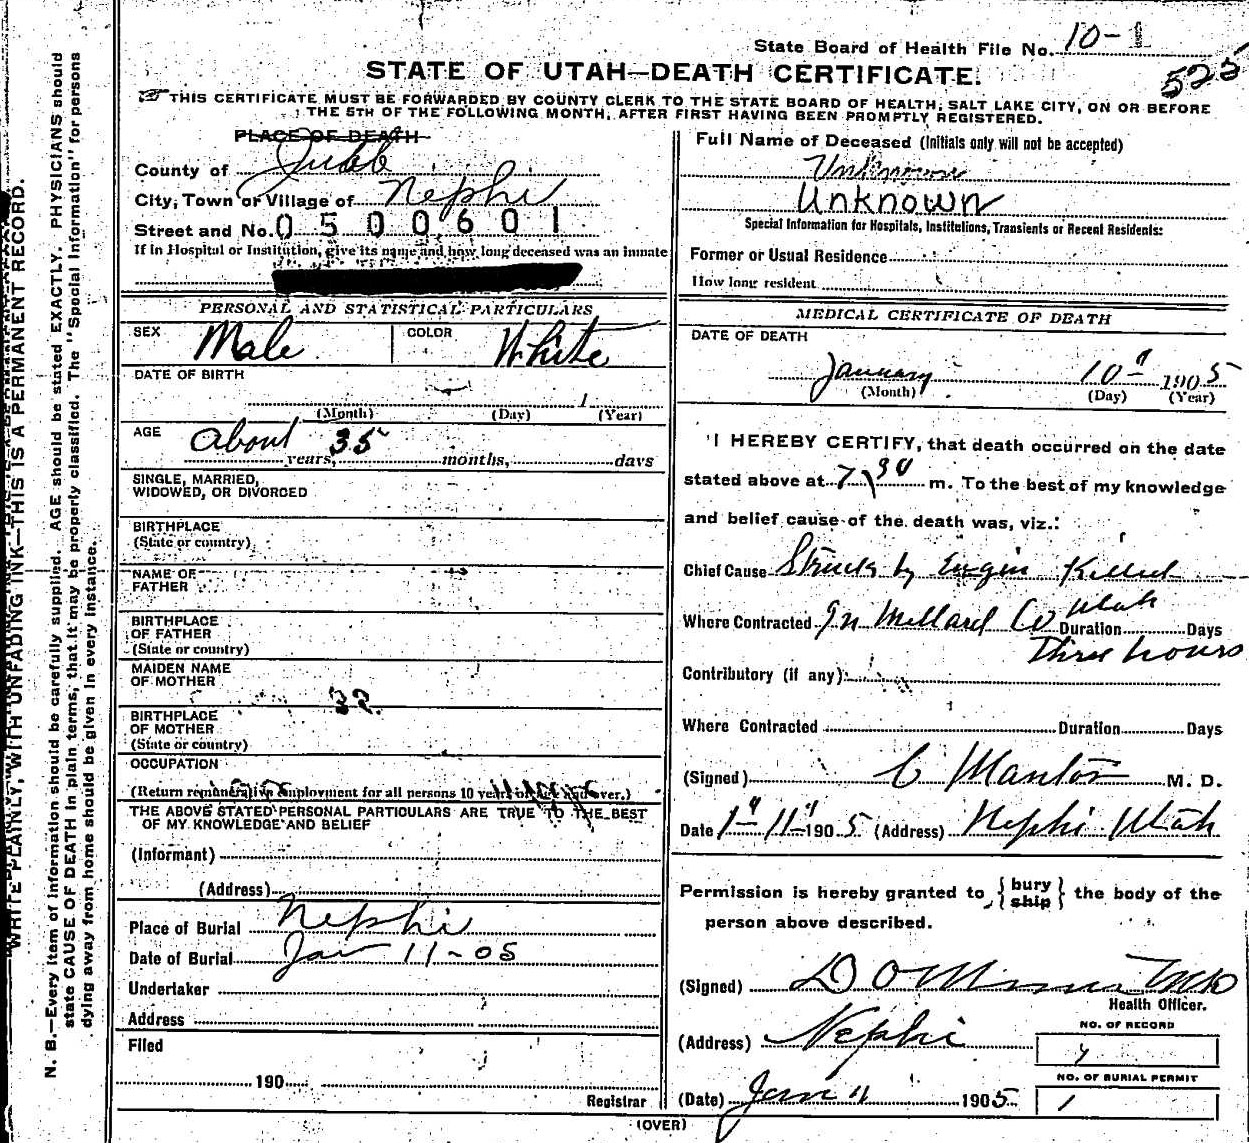 State Board of Health File No. 10-1
525
STATE OF UTAH—DEATH CERTIFICATE.
THIS CERTIFICATE MUST BE FORWARDED BY COUNTY CLERK TO THE STATE BOARD OF HEALTH, SALT LAKE CITY, ON OR BEFORE
THE 5TH OF THE FOLLOWING MONTH, AFTER FIRST HAVING BEEN PROMPTLY REGISTERED.
WRITE PLAINLY, WITH UNFADING INK—THIS IS A PERMANENT RECORD.
N. B.—Every item of information should be carefully supplied. AGE should be stated EXACTLY. PHYSICIANS should
state CAUSE OF DEATH in plain terms, that it may be properly classified. The "Special Information" for persons
dying away from home should be given in every instance.
PLACE OF DEATH
County of Juab
City, Town or Village of Nephi
Street and No. 0500601
If in Hospital or Institution, give its name and how long deceased was an inmate
PERSONAL AND STATISTICAL PARTICULARS
SEX Male COLOR White
DATE OF BIRTH
(Month) (Day) 1 (Year)
AGE about 35
years, months, days
SINGLE, MARRIED,
WIDOWED, OR DIVORCED
BIRTHPLACE
(State or country)
NAME OF
FATHER
BIRTHPLACE
OF FATHER
(State or country)
MAIDEN NAME
OF MOTHER
BIRTHPLACE
OF MOTHER
(State or country)
OCCUPATION
(Return remunerative employment for all persons 10 years of age and over.)
THE ABOVE STATED PERSONAL PARTICULARS ARE TRUE TO THE BEST
OF MY KNOWLEDGE AND BELIEF
(Informant)
(Address)
Place of Burial Nephi
Date of Burial Jan 11-05
Undertaker
Address
Filed
190
Registrar
Full Name of Deceased (Initials only will not be accepted)
Unknown
Unknown
Special Information for Hospitals, Institutions, Transients or Recent Residents:
Former or Usual Residence
How long resident
MEDICAL CERTIFICATE OF DEATH
DATE OF DEATH
January 10 1905
(Month) (Day) (Year)
I HEREBY CERTIFY, that death occurred on the date
stated above at 7 30 m. To the best of my knowledge
and belief cause of the death was, viz.:
Chief Cause Struck by Engin Killed
Where Contracted In Millard Co Utah Duration Days
Three hours
Contributory (if any)
Where Contracted Duration Days
(Signed) M. D.
Date 1 11 1905 (Address) Nephi Utah
Permission is hereby granted to {bury
ship} the body of the
person above described.
(Signed)
Health Officer.
(Address) Nephi
NO. OF RECORD
NO. OF BURIAL PERMIT
1
(Date) Jan 11 1905
(OVER)